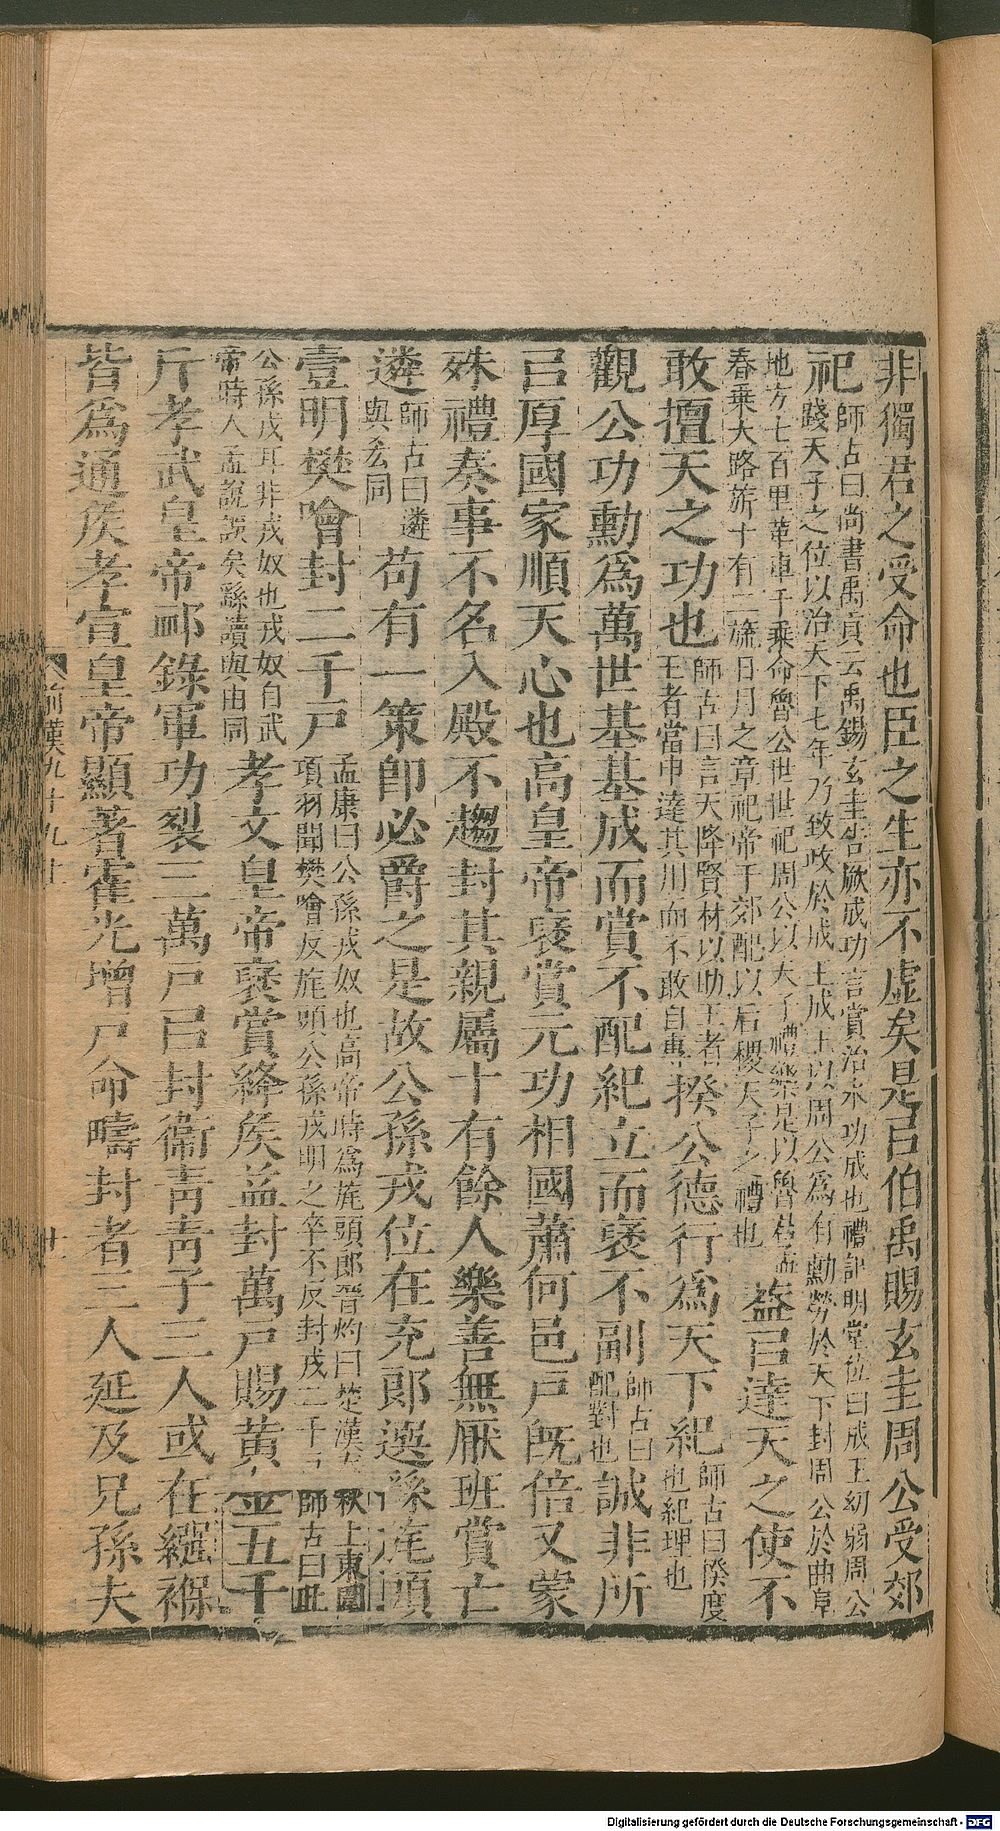 非獨君之受命也臣之生亦不虛矣是㠯伯禹賜玄圭周公受郊
祀師古曰尚書禹貢云禹錫玄圭告厥成功言賞治水功成也禮記明堂位曰成王幼弱周公
踐天子之位以治天下七年乃致政於成王成王以周公爲有勳勞於天下封周公於曲阜
地方七百里革車千乘命魯公世世祀周公以天子禮樂是以魯君孟
春乗大路旂十有二旒日月之章祀帝于郊配以后稷天子之禮也葢㠯達天之使不
敢擅天之功也師古曰言天降賢材以助王者
王者當申達其用而不敢自專揆公德行爲天下紀師古曰揆度
也紀理也
觀公功勳爲萬世基基成而賞不配紀立而褒不副師古曰
配對也誠非所
㠯厚國家順天心也高皇帝褒賞元功相國蕭何邑戸旣倍又蒙
殊禮奏事不名入殿不趨封其親屬十有餘人樂善無厭班賞亡
遴師古曰遴
與吝同苟有一策卽必爵之是故公孫戎位在充郎選繇旄頭
壹明樊噲封二千戸孟康曰公孫戎奴也高帝時爲旄頭郎晉灼曰楚漢春秋上東圍
項羽聞樊噲反旄頭公孫戎明之卒不反封戎二千戸師古曰此
公孫戎耳非戎奴也戎奴自武
帝時人孟說誤矣繇讀與由同孝文皇帝褒賞絳侯益封萬戸賜黄金五千
斤孝武皇帝卹錄軍功裂三萬戸㠯封衞青青子三人或在繦褓
皆爲通侯孝宣皇帝顯著霍光增戸命疇封者三人延及兄孫夫
前漢九十九上
廿
Digitalisierung gefördert durch die Deutsche Forschungsgemeinschaft - DFG